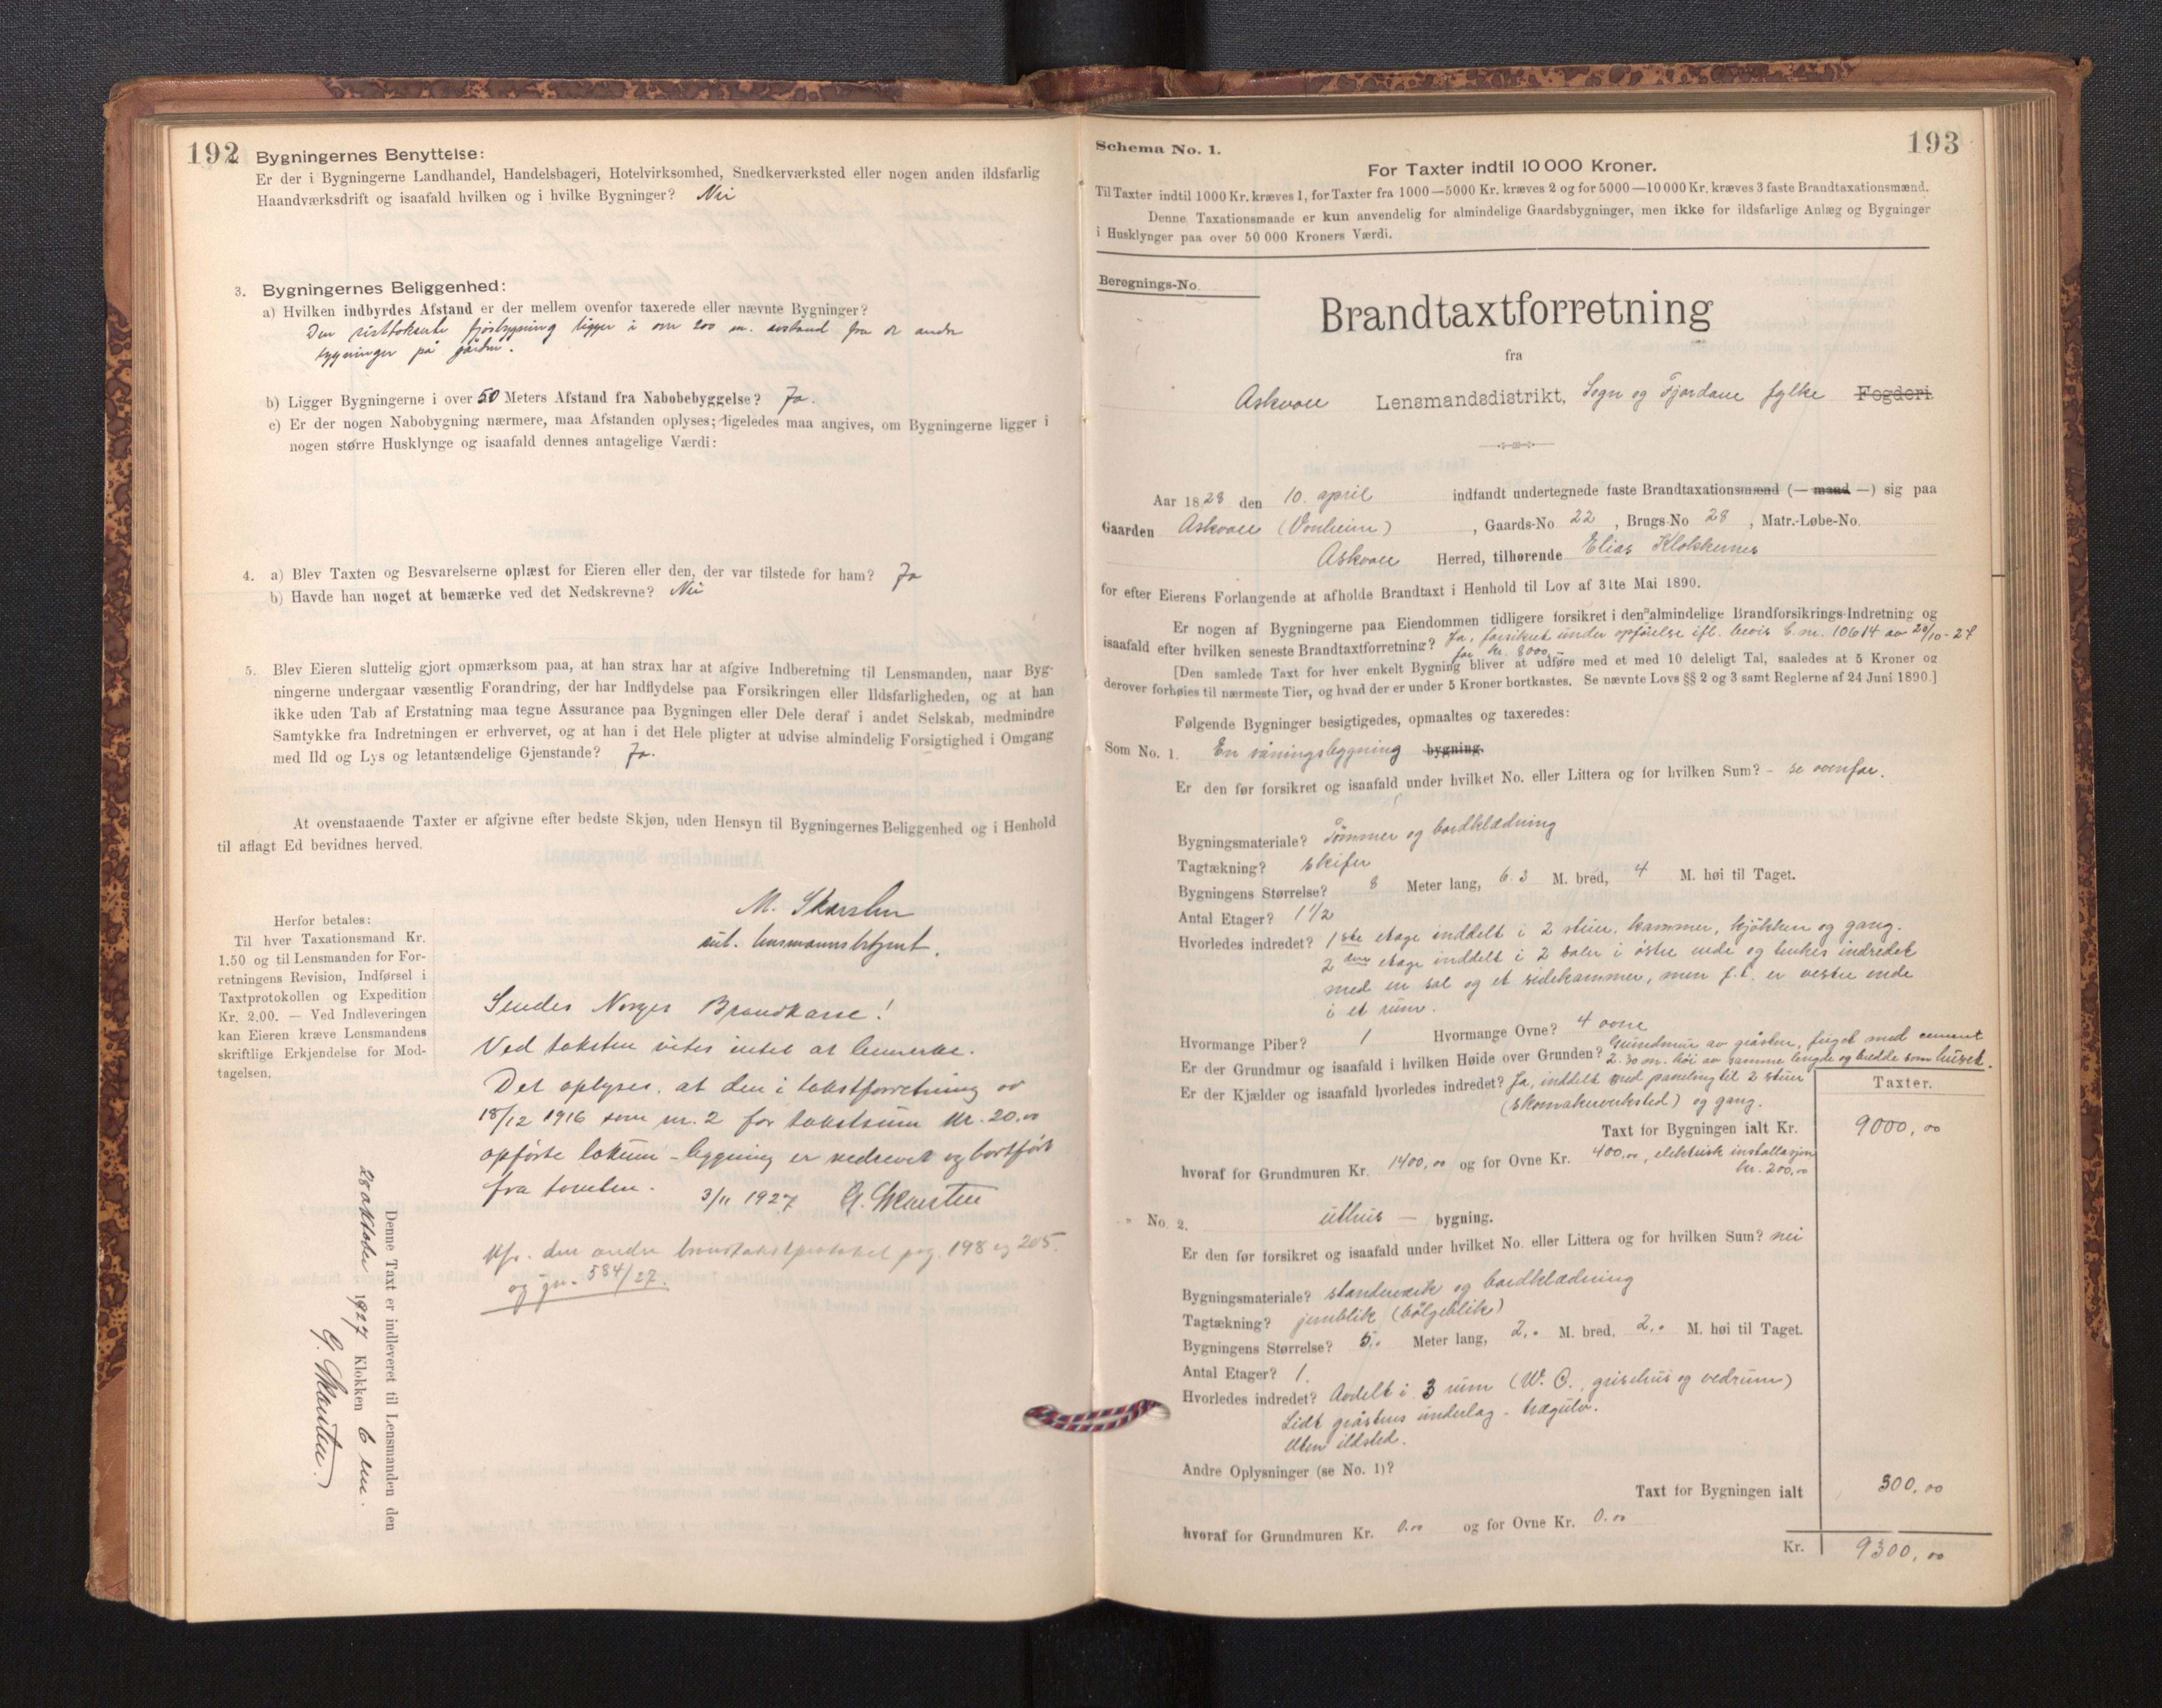 192
Bygningernes Benyttelse:
Er der i Bygningerne Landhandel, Handelsbageri, Hotelvirksomhed, Snedkerværksted eller nogen anden ildsfarlig
Haandværksdrift og isaafald hvilken og i hvilke Bygninger? Nei
3. Bygningernes Beliggenhed:
a) Hvilken indbyrdes Afstand er der mellem ovenfor taxerede eller nævnte Bygninger?
Den sisttakserte fjøsbygning ligger i om 200 m. avstand fra de andre
bygninger på gården.
b) Ligger Bygningerne i over 50 Meters Afstand fra Nabobebyggelse? Ja.
c) Er der nogen Nabobygning nærmere, maa Afstanden oplyses; ligeledes maa angives, om Bygningerne ligger i
nogen større Husklynge og isaafald dennes antagelige Værdi:
4. a) Blev Taxten og Besvarelserne oplæst for Eieren eller den, der var tilstede for ham? Ja
b) Havde han noget at bemærke ved det Nedskrevne? Nei
5. Blev Eieren sluttelig gjort opmærksom paa, at han strax har at afgive Indberetning til Lensmanden, naar Byg-
ningerne undergaar væsentlig Forandring, der har Indflydelse paa Forsikringen eller Ildsfarligheden, og at han
ikke uden Tab af Erstatning maa tegne Assurance paa Bygningen eller Dele deraf i andet Selskab, medmindre
Samtykke fra Indretningen er erhvervet, og at han i det Hele pligter at udvise almindelig Forsigtighed i Omgang
med Ild og Lys og letantændelige Gjenstande? Ja.
At ovenstaaende Taxter er afgivne efter bedste Skjøn, uden Hensyn til Bygningernes Beliggenhed og i Henhold
til aflagt Ed bevidnes herved.
M. Skarsten
lensmannsbetjent.
Herfor betales:
Til hver Taxationsmand Kr.
1.50 og til Lensmanden for For-
retningens Revision, Indførsel i
Taxtprotokollen og Expedition
Kr. 2.00. — Ved Indleveringen
kan Eieren kræve Lensmandens
skriftlige Erkjendelse for Mod-
tagelsen.
Sendes Norges Brandkasse!
Ved taksten vites intet at bemerke.
Det oplyses, at den i takstforretning av
18/12 1916 som nr. 2 for takstsum kr. 20.00
opførte lokum-bygning er nedrevet og bortført
fra tomten. 3/11 1927 G. Skarsten
Kfr. den andre brandtakstprotokol pag. 198 og 205.
og jn. 584/27.
Denne Taxt er indleveret til Lensmanden den
28 oktober 1927 Klokken 6 em.
G. Skarsten.
193
Schema No. 1.
For Taxter indtil 10 000 Kroner.
Til Taxter indtil 1000 Kr. kræves 1, for Taxter fra 1000—5000 Kr. kræves 2 og for 5000—10 000 Kr. kræves 3 faste Brandtaxationsmænd.
Denne Taxationsmaade er kun anvendelig for almindelige Gaardsbygninger, men ikke for ildsfarlige Anlæg og Bygninger
i Husklynger paa over 50 000 Kroners Værdi.
Beregnings-No.
Brandtaxtforretning
fra
Askvoll Lensmandsdistrikt, Sogn og Fjordane fylke Fogderi
Aar 1828 den 10. april indfandt undertegnede faste Brandtaxationsmænd (— mand —) sig paa
Gaarden Askvoll (Vonheim), Gaards-No 22, Brugs-No 28, Matr.-Løbe-No.
Askvoll Herred, tilhørende Elias Klokkernes
for efter Eierens Forlangende at afholde Brandtaxt i Henhold til Lov af 31te Mai 1890.
Er nogen af Bygningerne paa Eiendommen tidligere forsikret i den almindelige Brandforsikrings-Indretning og
isaafald efter hvilken seneste Brandtaxtforretning? Ja, forsikret under opførelse ifl. bevis b.nr. 10614 av 20/10-27
for kr. 8000
[Den samlede Taxt for hver enkelt Bygning bliver at udføre med et med 10 deleligt Tal, saaledes at 5 Kroner og
derover forhøies til nærmeste Tier, og hvad der er under 5 Kroner bortkastes. Se nævnte Lovs §§ 2 og 3 samt Reglerne af 24 Juni 1890.]
Følgende Bygninger besigtigedes, opmaaltes og taxeredes:
Som No. 1. En våningsbygning bygning.
Er den før forsikret og isaafald under hvilket No. eller Littera og for hvilken Sum? - se ovenfor.
Bygningsmateriale? Tømmer og bordklædning
Tagtækning? skifer
Bygningens Størrelse? 8 Meter lang, 6.3 M. bred, 4 M. høi til Taget.
Antal Etager? 1 1/2
Hvorledes indredet? 1ste etage inddelt i 2 stuer, kammer, kjøkken og gang.
2den etage inddelt i 2 saler i østre ende og tenkes indredet
med en sal og et sidekammer, men f.t. er vestre ende
i et rum.
Hvormange Piber? 1 Hvormange Ovne? 4 ovne
Er der Grundmur og isaafald i hvilken Høide over Grunden? Grundmur av gråsten, fuget med cement
2.30 m. høi av samme lengde og bredde som huset.
Er der Kjælder og isaafald hvorledes indredet? Ja, inddelt med paneling til 2 stuer
(skomakerverksted) og gang.
Taxter.
Taxt for Bygningen ialt Kr. 9000,00
hvoraf for Grundmuren Kr. 1400,00 og for Ovne Kr. 400,00, elektrisk installasjon
kr. 200,00
" No 2. uthus — bygning.
Er den før forsikret og isaafald under hvilket No. eller Littera og for hvilken Sum? nei
Bygningsmateriale? standerverk og bordklædning
Tagtækning? jernblik (bølgeblik)
Bygningens Størrelse? 5,. Meter lang, 2,. M. bred, 2,. M. høi til Taget.
Antal Etager? 1.
Hvorledes indredet? Avdelt i 3 rum (W.C., grisehus og vedrum)
Lidt gråstens underlag - trægulv.
Uten ildsted.
Andre Oplysninger (se No. 1)?
Taxt for Bygningen ialt 300,00
hvoraf for Grundmuren Kr. 0.00 og for Ovne Kr. 0.00
Kr. 9300,00